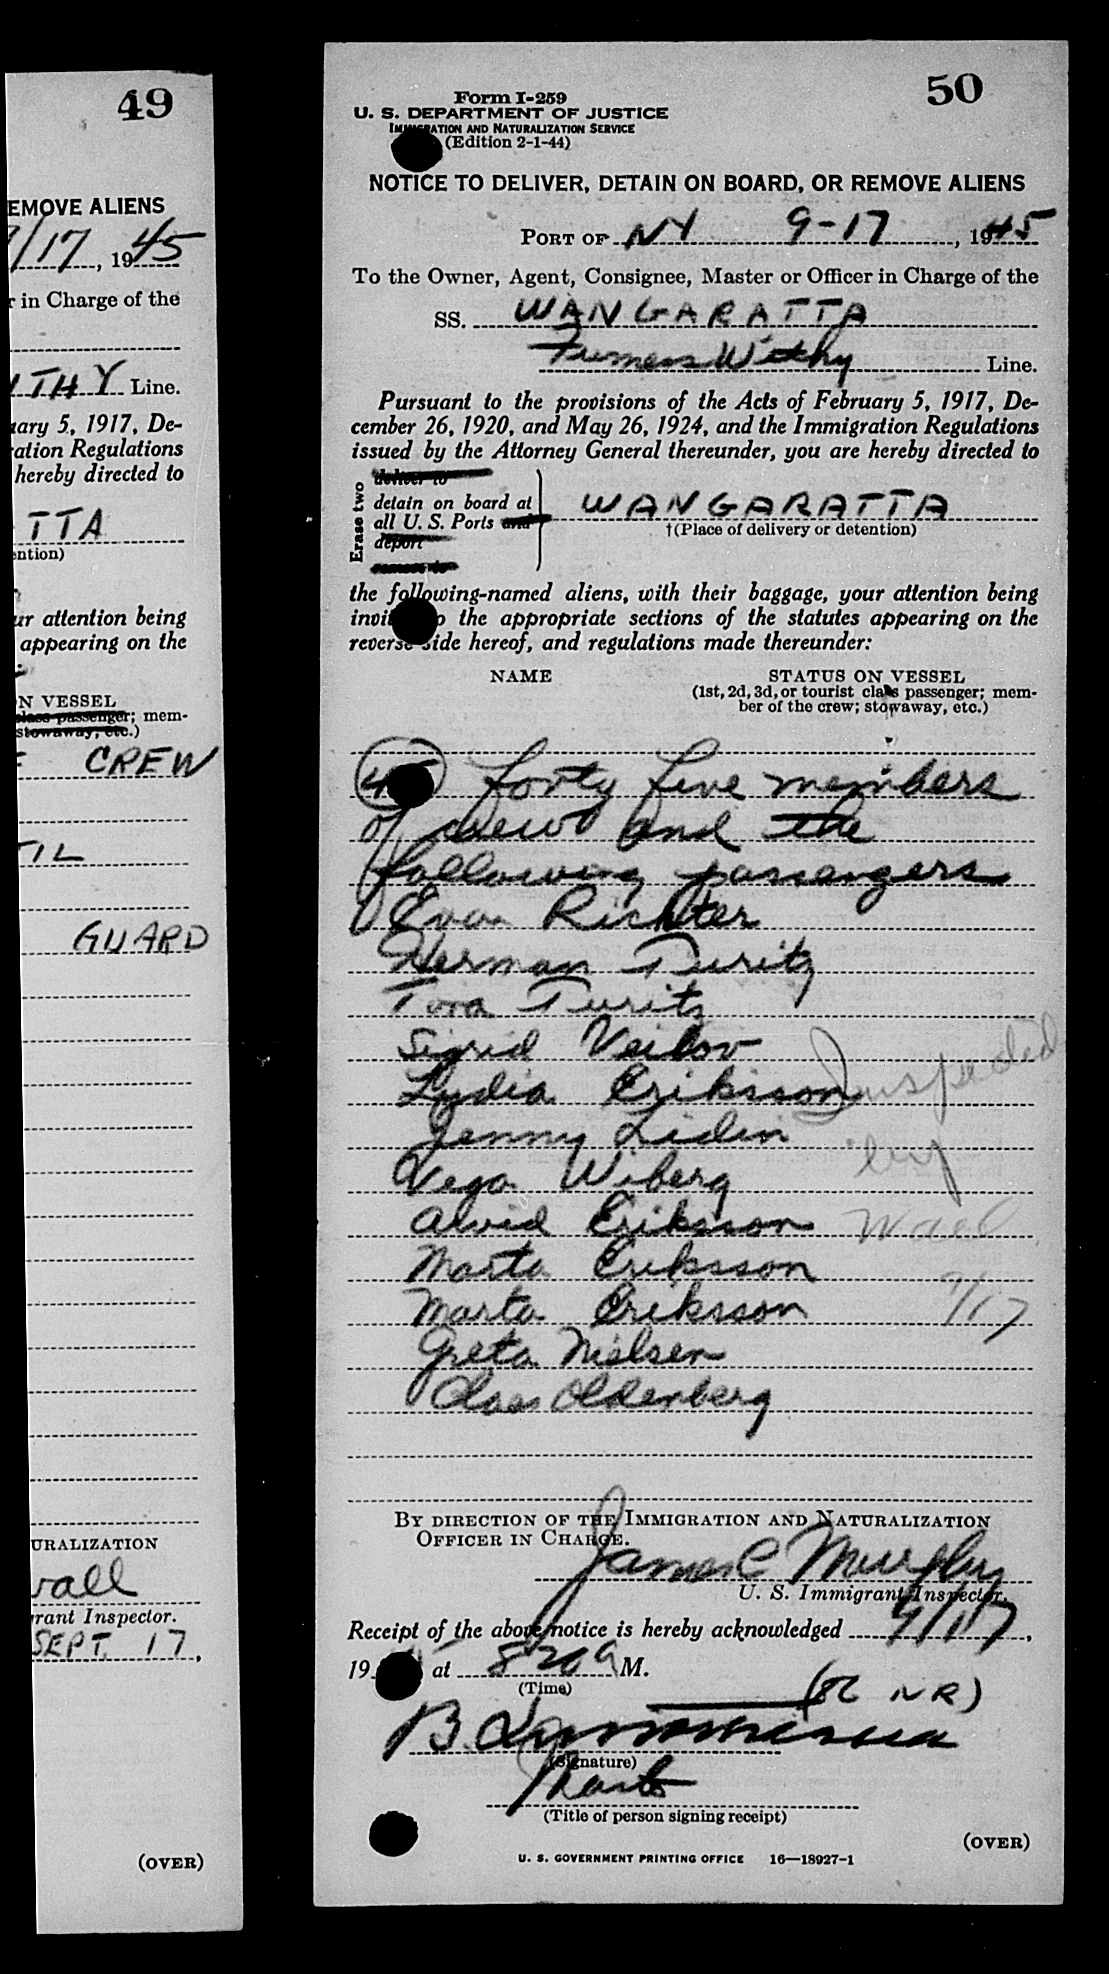 49
EMOVE ALIENS
9/17, 1945
r in Charge of the
ITHY Line.
uary 5, 1917, De-
ation Regulations
hereby directed to
TTA
ention)
ur attention being
appearing on the
N VESSEL
class passenger; mem-
stowaway, etc.)
CREW
TIL
GUARD
URALIZATION
vall
rant Inspector.
SEPT. 17,
(OVER)
50
Form I-259
U. S. DEPARTMENT OF JUSTICE
IMMIGRATION AND NATURALIZATION SERVICE
(Edition 2-1-44)
NOTICE TO DELIVER, DETAIN ON BOARD, OR REMOVE ALIENS
PORT OF NY 9-17, 1945
To the Owner, Agent, Consignee, Master or Officer in Charge of the
SS. WANGARATTA
Furness Withy Line.
Pursuant to the provisions of the Acts of February 5, 1917, De-
cember 26, 1920, and May 26, 1924, and the Immigration Regulations
issued by the Attorney General thereunder, you are hereby directed to
Erase two
deliver to
detain on board at
all U. S. Ports and
deport
remove to
WANGARATTA
†(Place of delivery or detention)
the following-named aliens, with their baggage, your attention being
invited to the appropriate sections of the statutes appearing on the
reverse side hereof, and regulations made thereunder:
NAME STATUS ON VESSEL
(1st, 2d, 3d, or tourist class passenger; mem-
ber of the crew; stowaway, etc.)
45 forty five members
of crew and the
following passengers
Evan Richter
Herman Turitz
Tora Turitz
Sigrid Veilov
Lydia Eriksson
Jenny Lidin
Vega Wiberg
Arvid Eriksson
Marta Eriksson
Marta Eriksson
Greta Nielsen
Claes Oldenberg
Inspected
by
Wall
9/17
BY DIRECTION OF THE IMMIGRATION AND NATURALIZATION
OFFICER IN CHARGE.
James C Murphy
U. S. Immigrant Inspector.
Receipt of the above notice is hereby acknowledged 9/17,
1945 at 820 A M.
(Time)
NR)
B.
(Signature)
(Title of person signing receipt)
(OVER)
U. S. GOVERNMENT PRINTING OFFICE 16—18927-1